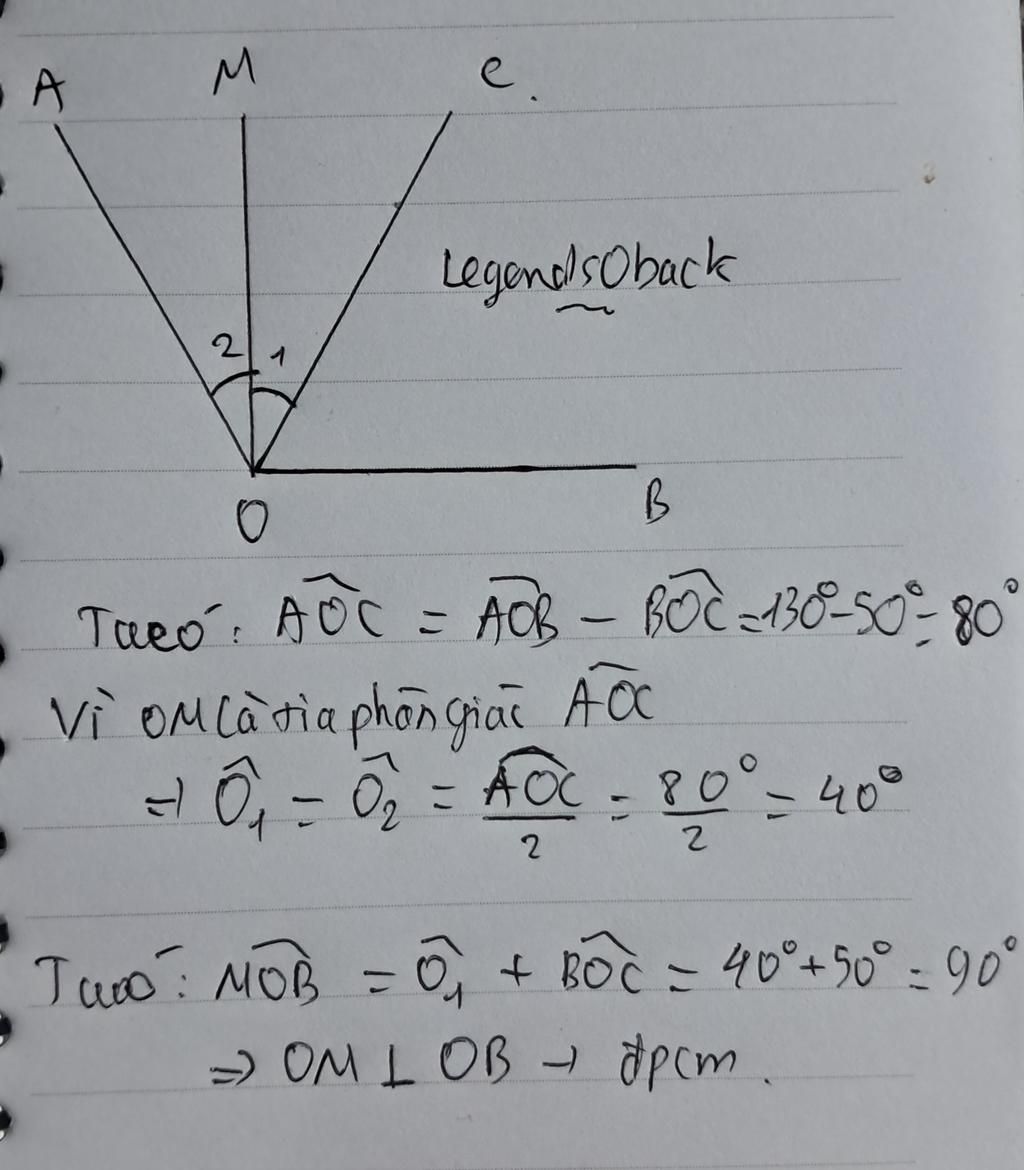 A M C.
2 1
LegendsOback
O B
Ta có: AÔC = AÔB - BÔC = 130° - 50° = 80°
Vì OM là tia phân giác AÔC
=> Ô₁ = Ô₂ = AÔC/2 = 80°/2 = 40°
Ta có: MÔB = Ô₁ + BÔC = 40° + 50° = 90°
=> OM ⊥ OB → đpcm.